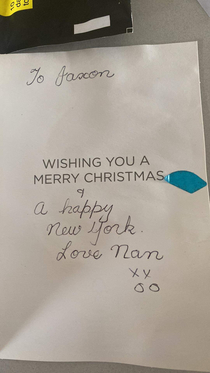 To Jaxon
WISHING YOU A
MERRY CHRISTMAS
&
A happy
New York.
Love Nan
xx
OO